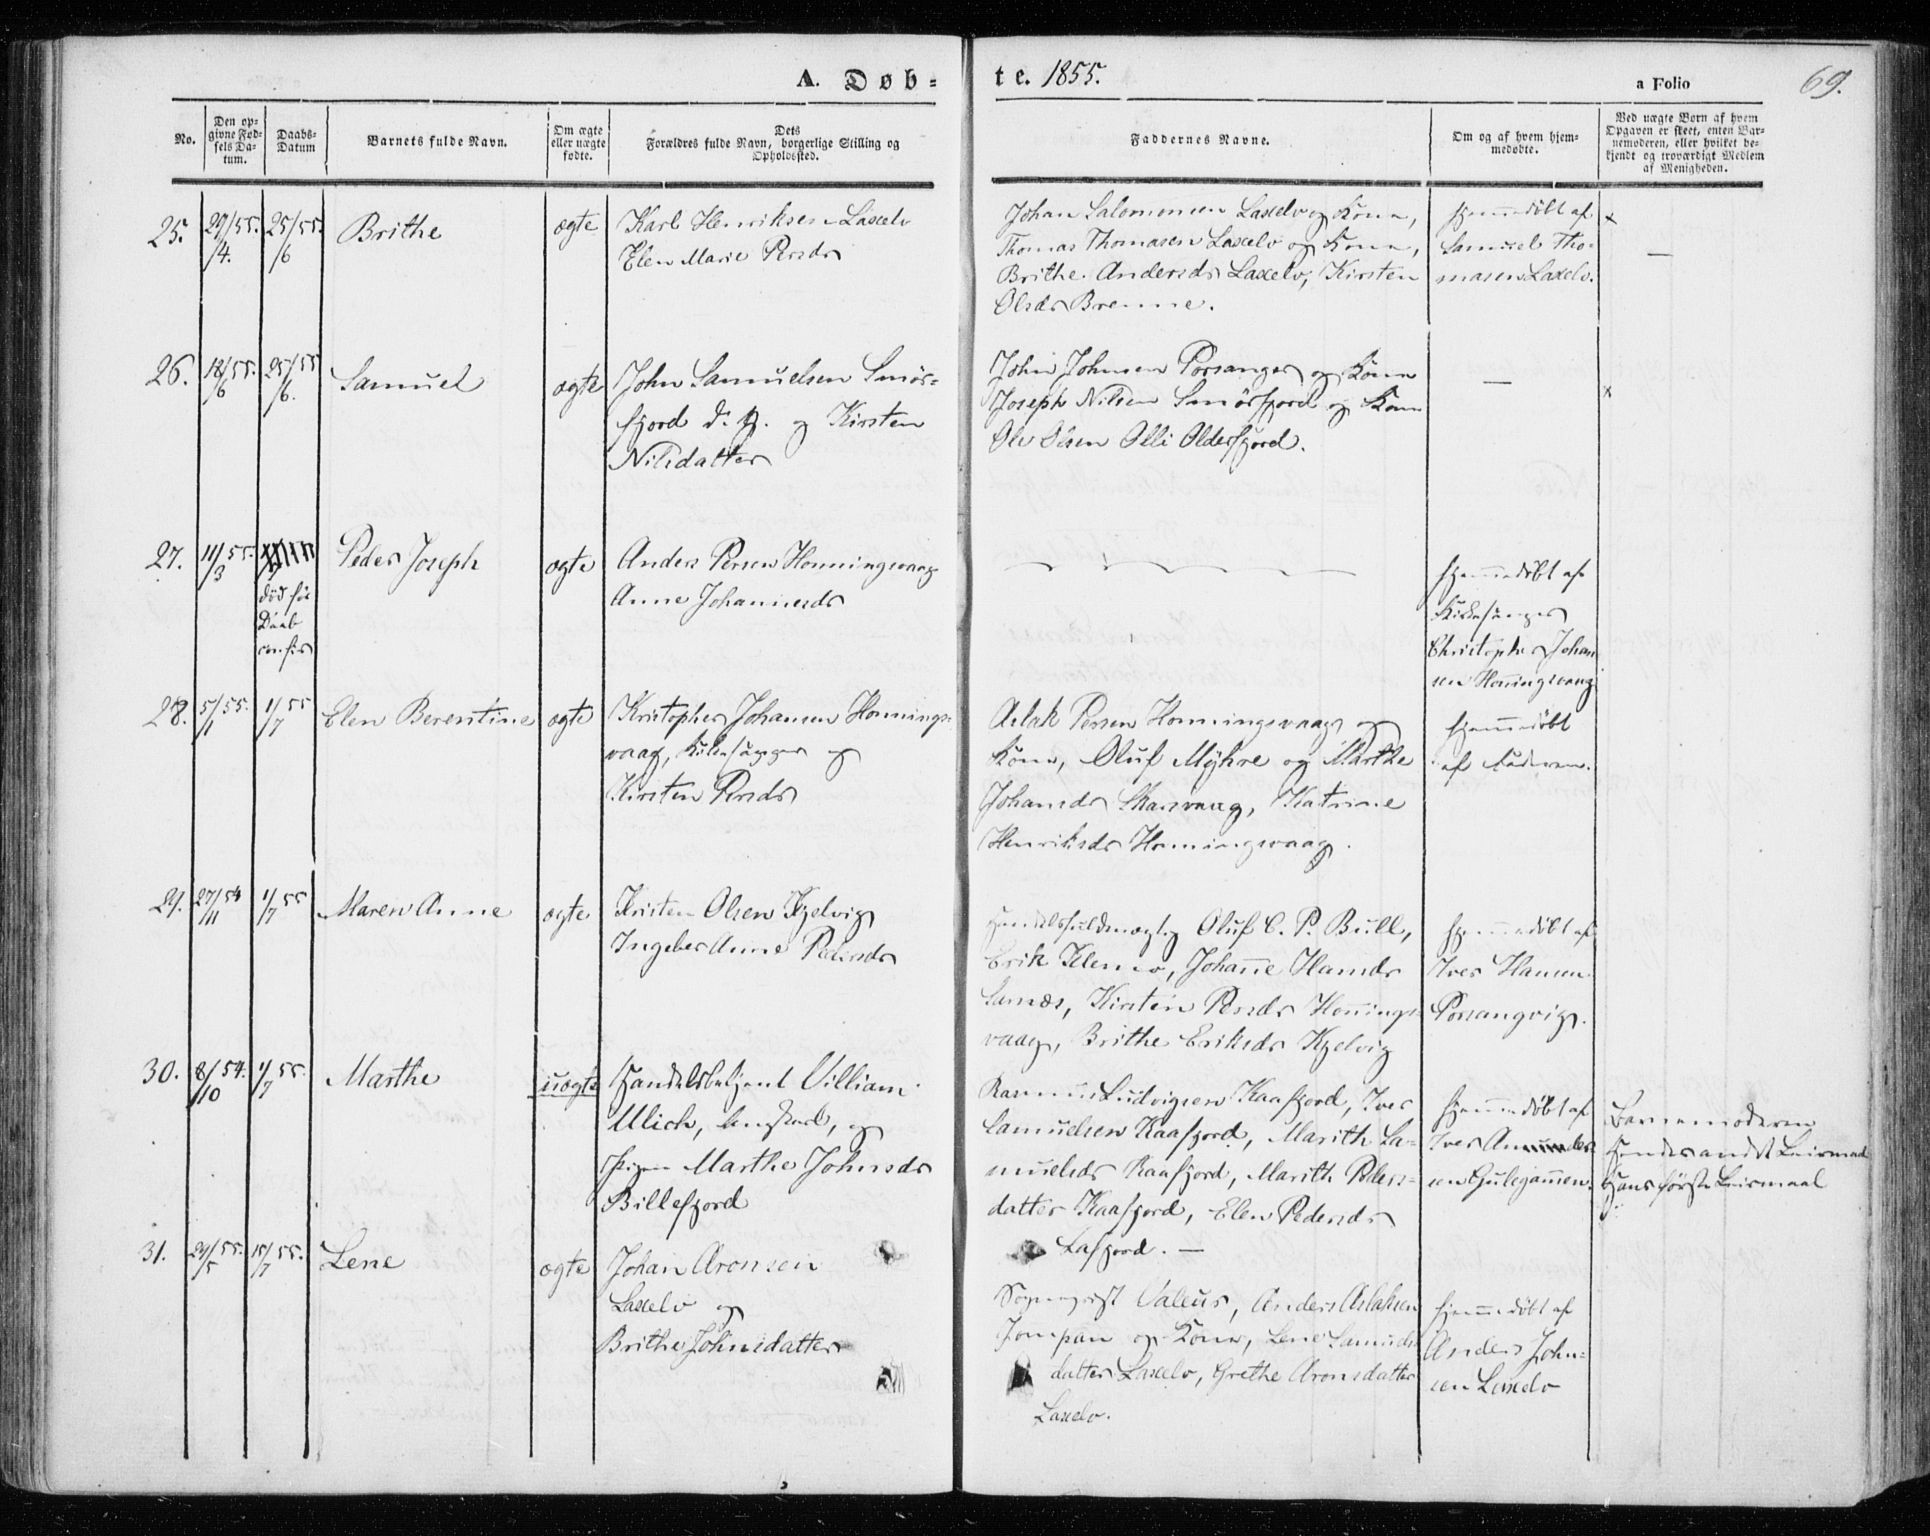 A. Døb-
te. 1855.
a Folio
69.
No.
Den op-
givne Fød-
sels Da-
tum.
Daabs-
Datum
Barnets fulde Navn.
Om ægte
eller uægte
fødte.
Dets
Forældres fulde Navn, borgerlige Stilling og
Opholdssted.
Faddernes Navne.
Om og af hvem hjem-
medøbte.
Ved uægte Børn af hvem
Opgaven er skeet, enten Bar-
nemoderen, eller hvilket be-
kjendt og troværdigt Medlem
af Menigheden.
25.
29/55.
/4.
25/55.
/6
Brithe
ægte
Karl Henriksen Laxelv
Elen Marie Persdr
Johan Salomonsen Laxelv og Kone,
Thomas Thomasen Laxelv og Kone,
Brithe Andersdr Laxelv, Kirsten
Olsdr Brenne.
hjemmedøbt af
Samuel Tho-
masen Laxelv.
x
—
26.
18/55.
/6
25/55
/6.
Samuel
ægte
John Samuelsen Smör-
fjord og Kirsten
Nilsdatter
John Johnsen Porsanger og Kone
Joseph Nilsen Smörfjord og Kone
Ole Olsen Olli Olderfjord.
—
x
27.
11/55.
/3
død før
Daab
Peder Joseph
ægte
Anders Persen Honningsvaag
Anne Johannesdr
hjemmedøbt af
Kirkesanger
Christopher Johan
sen Honingsvaag
28.
5/55.
/1
1/55
/7
Elen Berentine
ægte
Kristopher Johansen Honnings-
vaag, Kirkesanger og
Kirsten Persdr
Aslak Persen Honningsvaag og
Kone, Oluf Myhre og Marthe
Johansdr Skarsvaag, Katrine
Henriksdr Honningsvaag.
hjemmedøbt
af Faderen.
29.
27/54
/11
1/55
/7
Maren Anne
ægte
Kristen Olsen Kjelvig
Ingeber Anne Pedersdr
Handelsfuldmægtig Oluf C. P. Bull,
Erik Klemo, Johanne Hansdr
Sarnæs, Kirsten Persdr Honings-
vaag, Brithe Eriksdr Kjelvig
hjemmedøbt af
Iver Hansen
Porsangvig.
30.
8/54.
/10
1/55.
/7
Marthe
uægte
Handelsbetjent Villiam
Ulich, og
Pigen Marthe Johnsdr
Billefjord
Rasmus Ludvigsen Kaafjord, Iver
Samuelsen Kaafjord, Marith Sa-
muelsdr Kaafjord, Marith Peders-
datter Kaafjord, Elen Pedersdr
Lafjord. —
hjemmedøbt af
Iver Amunder
sen Gulegammen.
Barnemoderen
Hendes andet Leiermaal
Hans første Leiermaal
31.
29/55.
/5
15/55.
/7
Lene
ægte
Johan Aronsen
Laxelv og
Brithe Johnsdatter
Sogneprest Valeur, Anders Aslaksen
Jompan og Kone, Lene Samuels-
datter Laxelv, Grethe Aronsdatter
Laxelv.
hjemmedøbt af
Anders John-
sen Laxelv